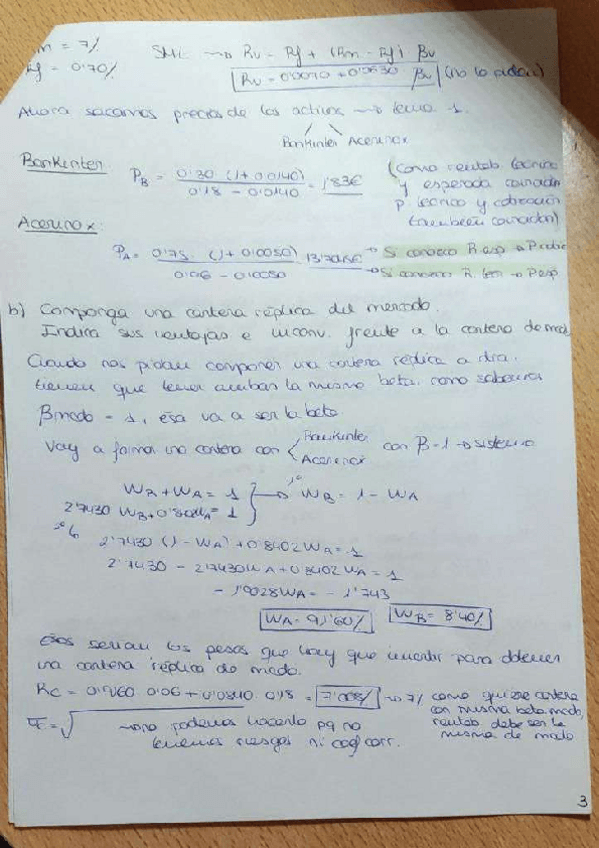 Rm = 7%
Rf = 0'70%
SML → Rv = Rf + (Rm - Rf) βv
Rv = 0'0070 + 0'0630 βv (no lo piden)
Ahora sacamos precios de los activos → tema 1.
Bankinter Acerinox
Bankinter
P_B = 0'30 (1 + 0'0140) / 0'18 - 0'0140 = 1'83€
(como rentab. técnica
y esperada coinciden
p. técnico y cotización
también coinciden)
Acerinox
P_A = 0'75 (1 + 0'0050) / 0'06 - 0'0050 = 13'7045€
→ Si conozco R. esp →
→ Si conozco R. tec → P esp
b) Componga una cartera réplica del mercado.
Indica sus ventajas e inconv. frente a la cartera de mdo.
Cuando nos piden componer una cartera réplica a otra,
tienen que tener ambas la misma beta. como sabemos
β mdo = 1, esa va a ser la beta.
Voy a formar una cartera con Bankinter Acerinox con β = 1 → sistema
W_B + W_A = 1
2'7430 W_B + 0'8402 W_A = 1
1º W_B = 1 - W_A
2'7430 (1 - W_A) + 0'8402 W_A = 1
2'7430 - 2'7430 W_A + 0'8402 W_A = 1
- 1'9028 W_A = - 1'743
W_A = 91'60% W_B = 8'40%
Esos serían los pesos que hay que invertir para obtener
una cartera réplica de mdo.
Rc = 0'9160 · 0'06 + 0'0840 · 0'18 = 7'008% → 7% como quiere cartera
con misma beta mdo,
rentab debe ser la
misma de mdo
√ → no podemos hacerlo pq no
tenemos riesgos ni coef corr.
3